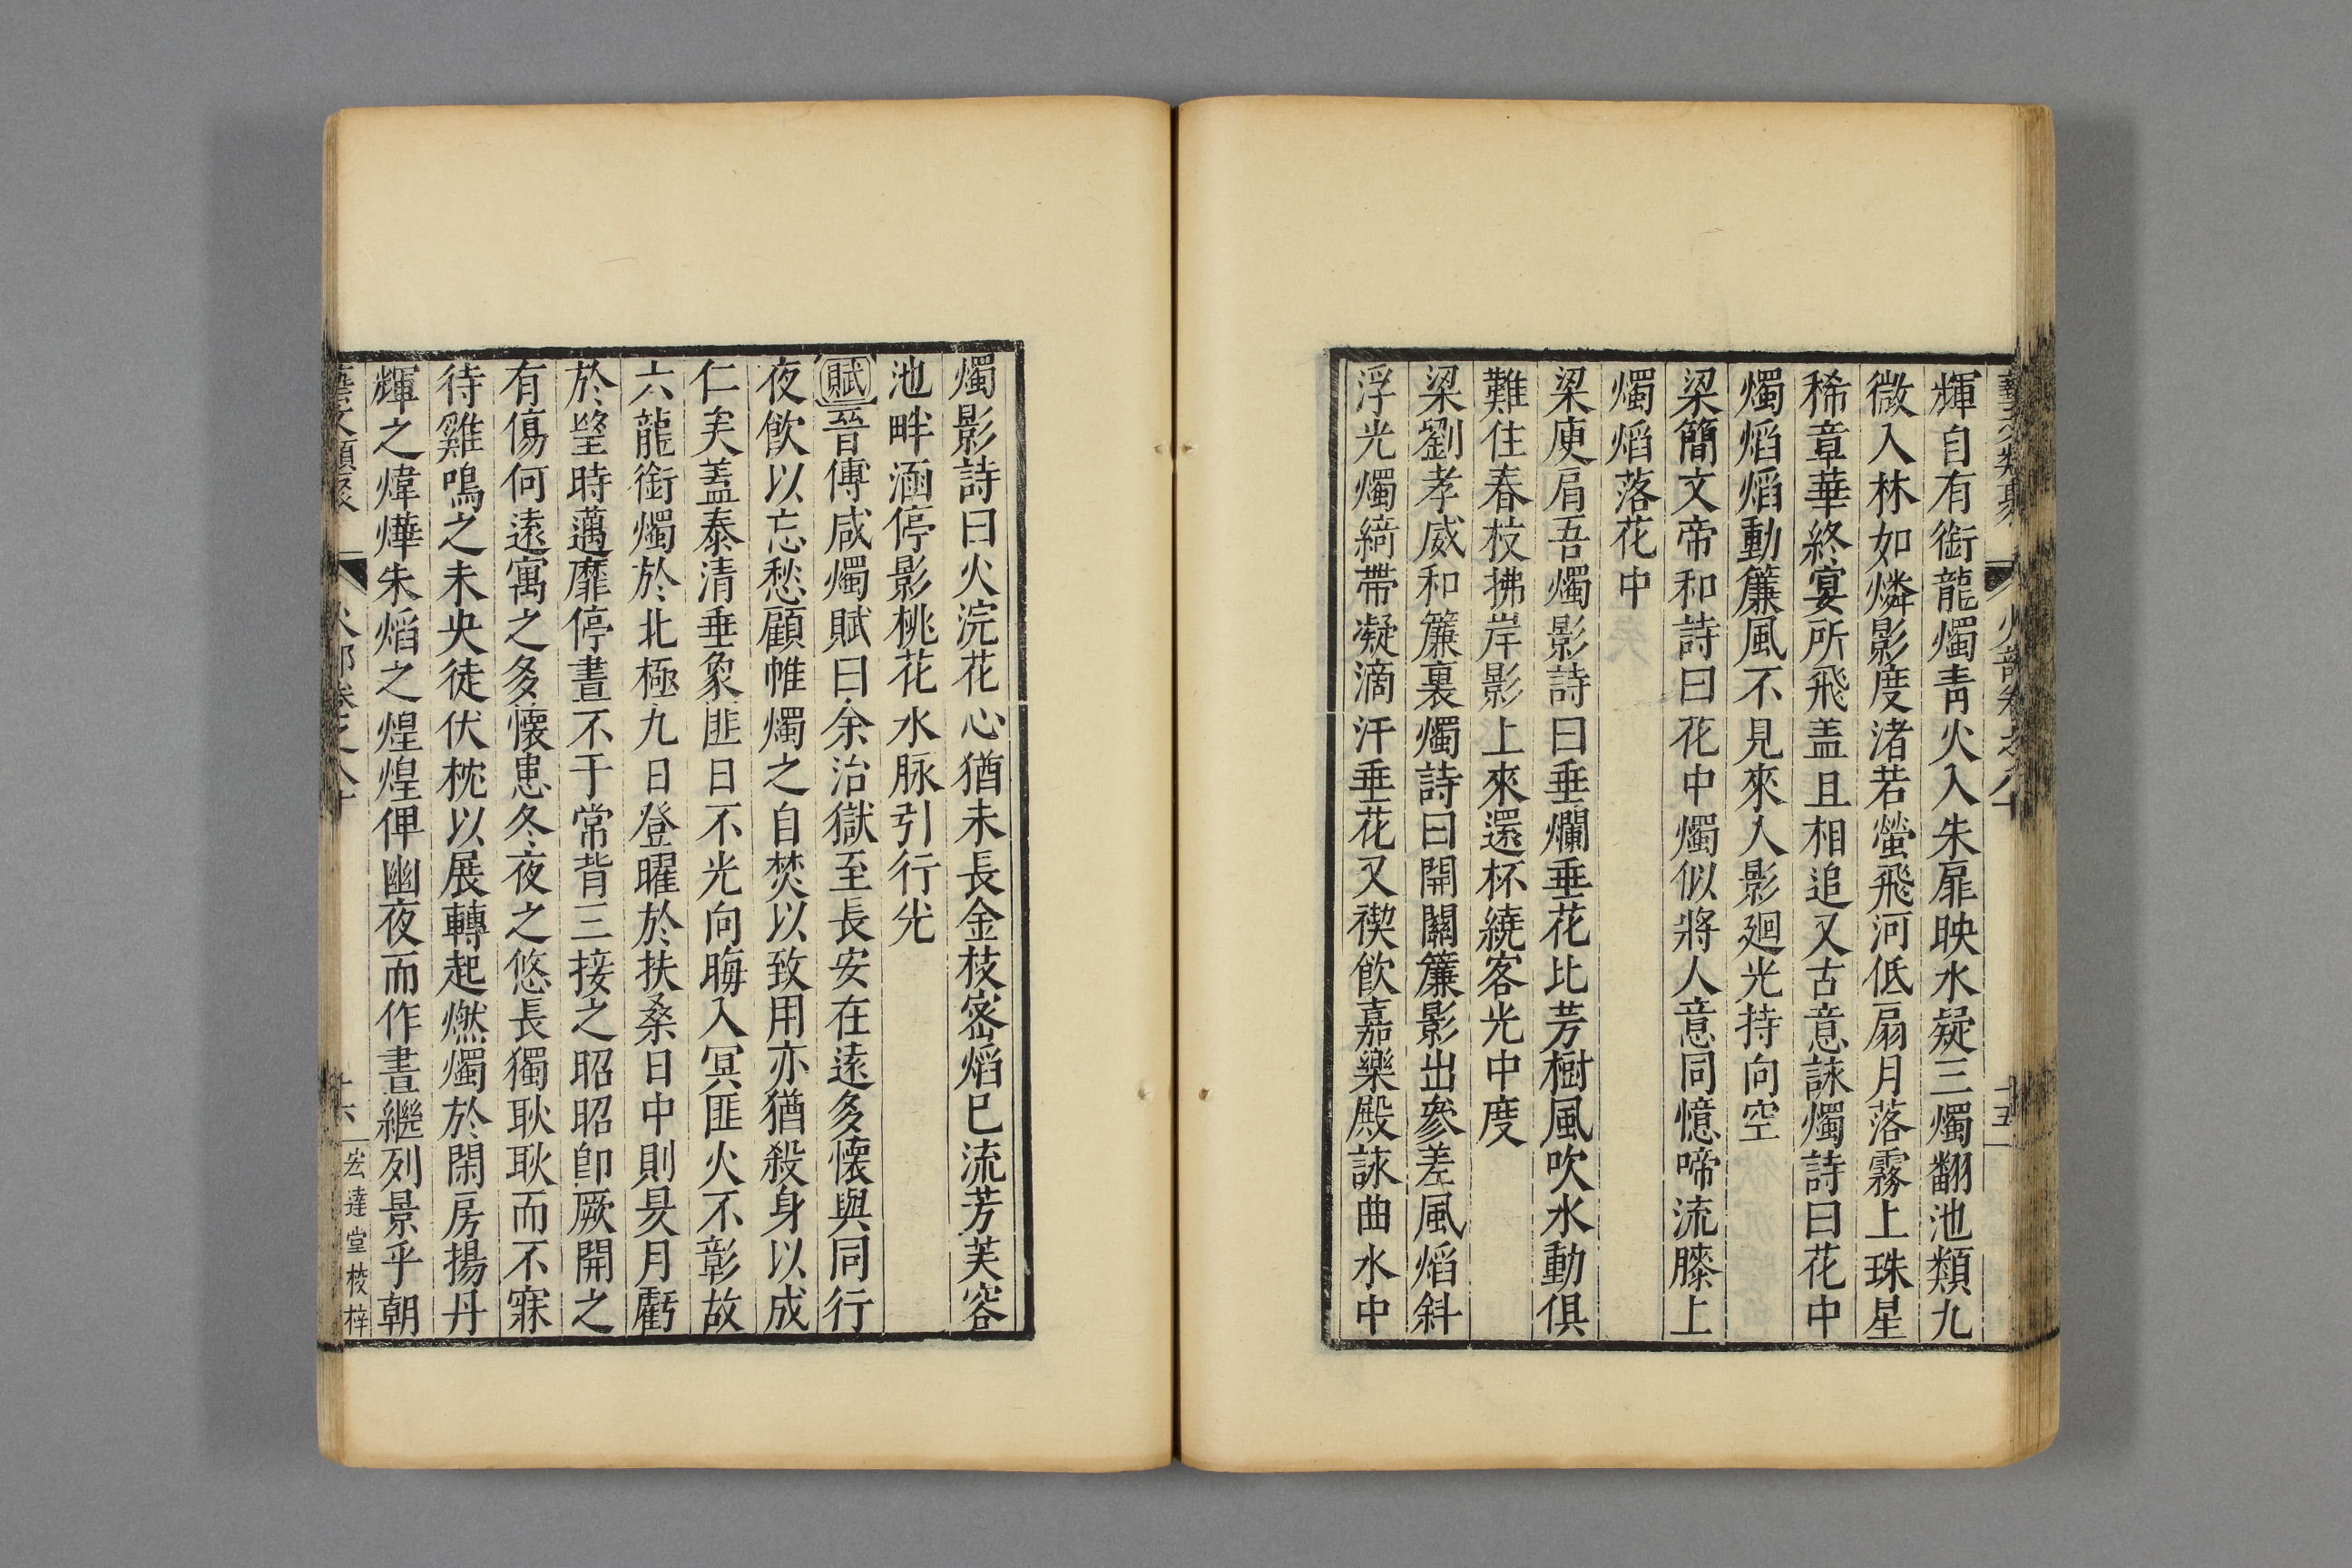 輝自有銜龍燭青火入朱扉映水疑三燭翻池類九
微入林如燐影度渚若螢飛河低扇月落霧上珠星
稀章華終宴所飛盖且相追又古意詠燭詩曰花中
燭熖熖動簾風不見來人影廻光持向空
梁簡文帝和詩曰花中燭似將人意同憶啼流膝上
燭熖落花中
梁庾肩吾燭影詩曰垂爛垂花比芳樹風吹水動俱
難住春枝拂岸影上來還杯繞客光中度
梁劉孝威和簾裏燭詩曰開關簾影出參差風熖斜
浮光燭綺帶凝滴汗垂花又禊飲嘉樂殿詠曲水中
燭影詩曰火浣花心猶未長金枝宻熖巳流芳芙容
池畔涵停影桃花水脉引行光
賦晉傅咸燭賦曰余治獄至長安在逺多懐與同行
夜飲以忘愁顧帷燭之自焚以致用亦猶殺身以成
仁矣盖泰清垂象匪日不光向晦入冥匪火不彰故
六龍銜燭於北極九日登曜於扶桑日中則昃月虧
於望時邁靡停晝不于常背三接之昭昭卽厥開之
有傷何逺寓之多懐患冬夜之悠長獨耿耿而不寐
待雞鳴之未央徒伏枕以展轉起燃燭於閑房揚丹
輝之煒燁朱熖之煌煌俾幽夜而作晝繼列景乎朝
十六 宏達堂校梓